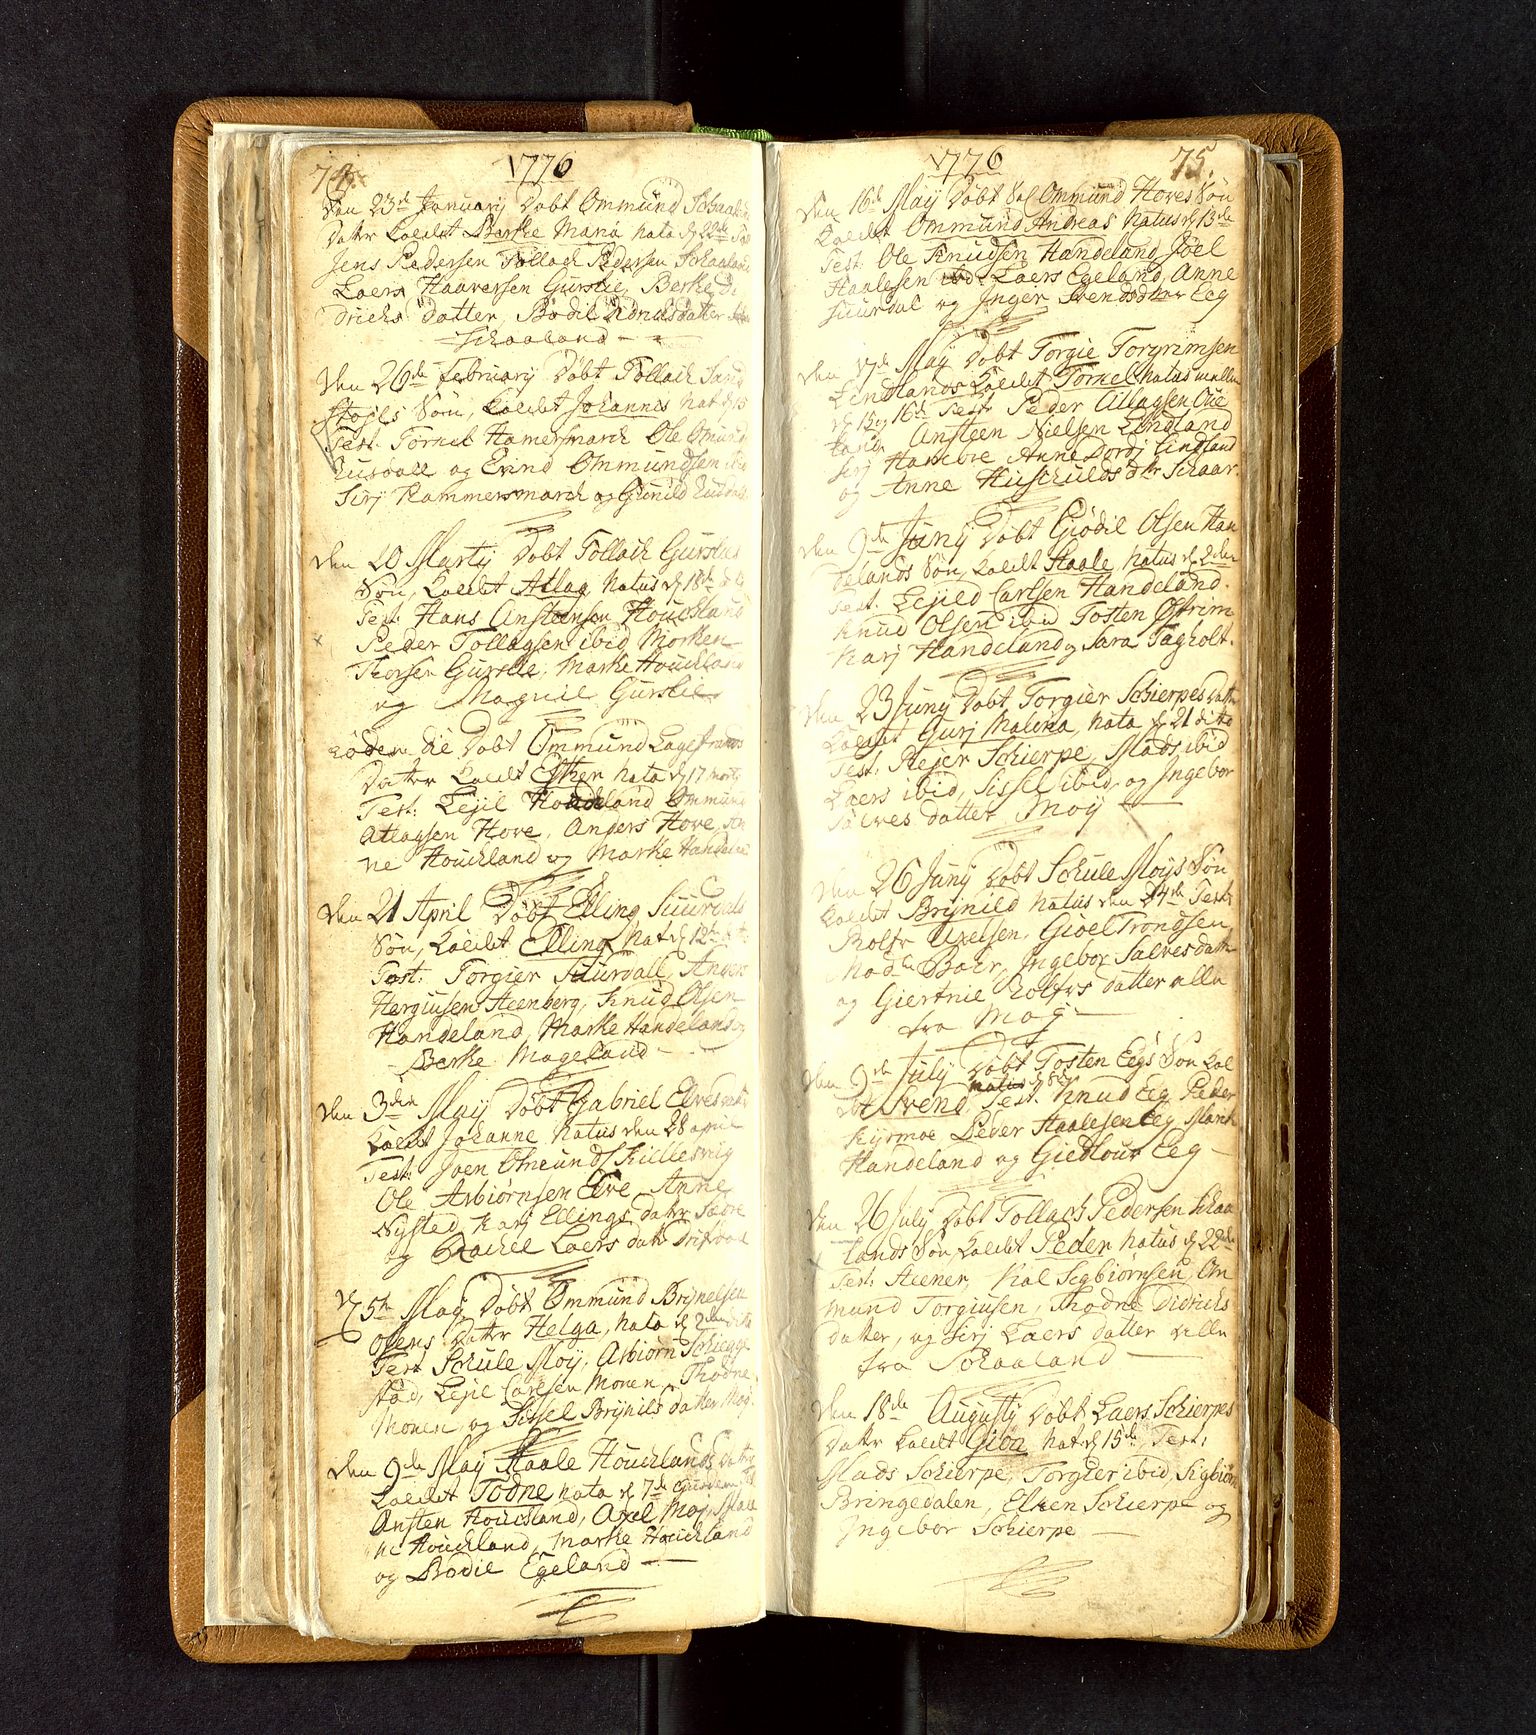 74.
1776
Den 23de January Døbt Ommund Schaalands
datter kaldet Berthe Maria nata d 22de Test
Jens Pedersen Tollach Pedersen Schaaland
Laers Haaversen Gurslie, Berthe Di
drichs datter, Bodil Didrichsdatter
Schaaland
Den 26de February Døbt Tollach
Søn, kaldet Johannes Nat d 15
Test. Tornel Hamersmarck Ole Omund
Ruswall og Ennd Ommundsen
Sirj Hammersmarck og Gunild
Den 20 Marty Døbt Tollach Gurslies
Søn, kaldet Atlag natus d 18de
Test. Hans Ansteensen Houchland
Peder Tollagsen ibid Morten
Thorsen Gurslie, Marthe Houchland
og Magnil Gurslie
Døbt Ommund
Datter kaldet Esther nata d 17 marty
Test. Lejel Ommund
Atlagsen Hove, Anders Hove,
ne Houchland og Marthe
Den 21 April Døbt Elling Suurdals
Søn, kaldet Elling Nat d 12te
Test. Torgier Suurdall, Anders
Hergiusen Steenberg, Knud Olsen
Handeland, Marthe Handeland og
Berthe Mageland
Den 3den May Døbt Gabriel Elves datter
kaldet Johanne Natus den 28 april
Test. Joen Omunds
Ole Asbiørnsen Elve Anne
Nysted, Karj Ellings datr Sædre
og Rachel Laers datr
d 5te May Døbt Ommund Brynelsen
datter Helga, nata d 2den dito
Test Schule Moy, Asbiørn
stad, Lejel Carlsen Monen, Thodne
Monen og Sissel Brynils datter Moy.
Den 9de May Staale Houchlands datter
kaldet Todne nata d 7de
Ansten Houchland, Axel Moj,
ne Houchland, Marthe Houchland
og Bodil Egeland
1776
75.
Den 16de May Døbt Ommund Hoves Søn
kaldet Ommund Andreas Natus d 13de
Test. Ole Knudsen Handeland Joel
Haalesen ibid Laers Egeland, Anne
Suurdal og Inger Svendsdttr Eeg
Den 17de May Døbt Torgie Torgrimsen
Lindlands kaldet Tornel natus mellem
d 15 og 16de Test. Peder Atlagsen
Ansteen Nielsen Lindland
Sirj Hamebre Anne Dordj Lindland
og Anne Huschulds dtr Schaar.
Den 9de Juny Døbt Giødil Olsen Han
delands Søn, kaldet Staale, natus d 2den
Test. Lejeld Carlsen Handeland.
Knud Olsen ibid Tosten
Karj Handeland og Sara Tagholt.
Den 23 Juny Døbt Torgier Schierpes datter
kaldet Gurj Malena, nata d 21 dito
Test. Rejer Schierpe, Mads ibid
Laers ibid, Sissel ibid, og Ingebor
Salves datter Moy
Den 26 Juny Døbt Schule Moys Søn
kaldet Brynild natus den 24de Test.
Rolfr Axelsen, Gioel Trondsen
Mads Boer, Ingebor Salvesdatter
og Giertrue Rolfrs datter alle
fra Moy
Den 9de July Døbt Tosten Eegs Søn kal
det Svend natus d 8de Test. Knud Eeg Peder
Kyrmoe Peder Staalesen Eeg
Handeland og Giedlour Eeg
Den 26 July Døbt Tollach Pedersen Schaa
lands Søn, kaldet Peder natus d 22de
Test. Steener, Kal Segbiørnsen, Om
mund Torgiusen, Thodne Didrichs
datter, og Sirj Laers datter alle
fra Schaaland
Den 18de Augusty Døbt Laers Schierpes
Datr kaldet Gioa Nat d 15de, Test.
Mads Schierpe, Torgier ibid, Sigbiørn
Bringedalen, Elken Schierpe og
Ingebor Schierpe